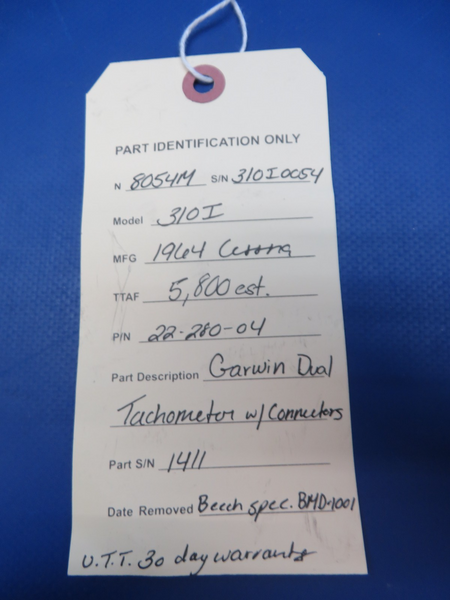 PART IDENTIFICATION ONLY
N 8054M S/N 310I0054
Model 310I
MFG 1964 Cessna
TTAF 5,800 est.
P/N 22-280-04
Part Description Garwin Dual
Tachometer w/ Connectors
Part S/N 1411
Date Removed Beech spec. BMD-1001
U.T.T. 30 day warranty